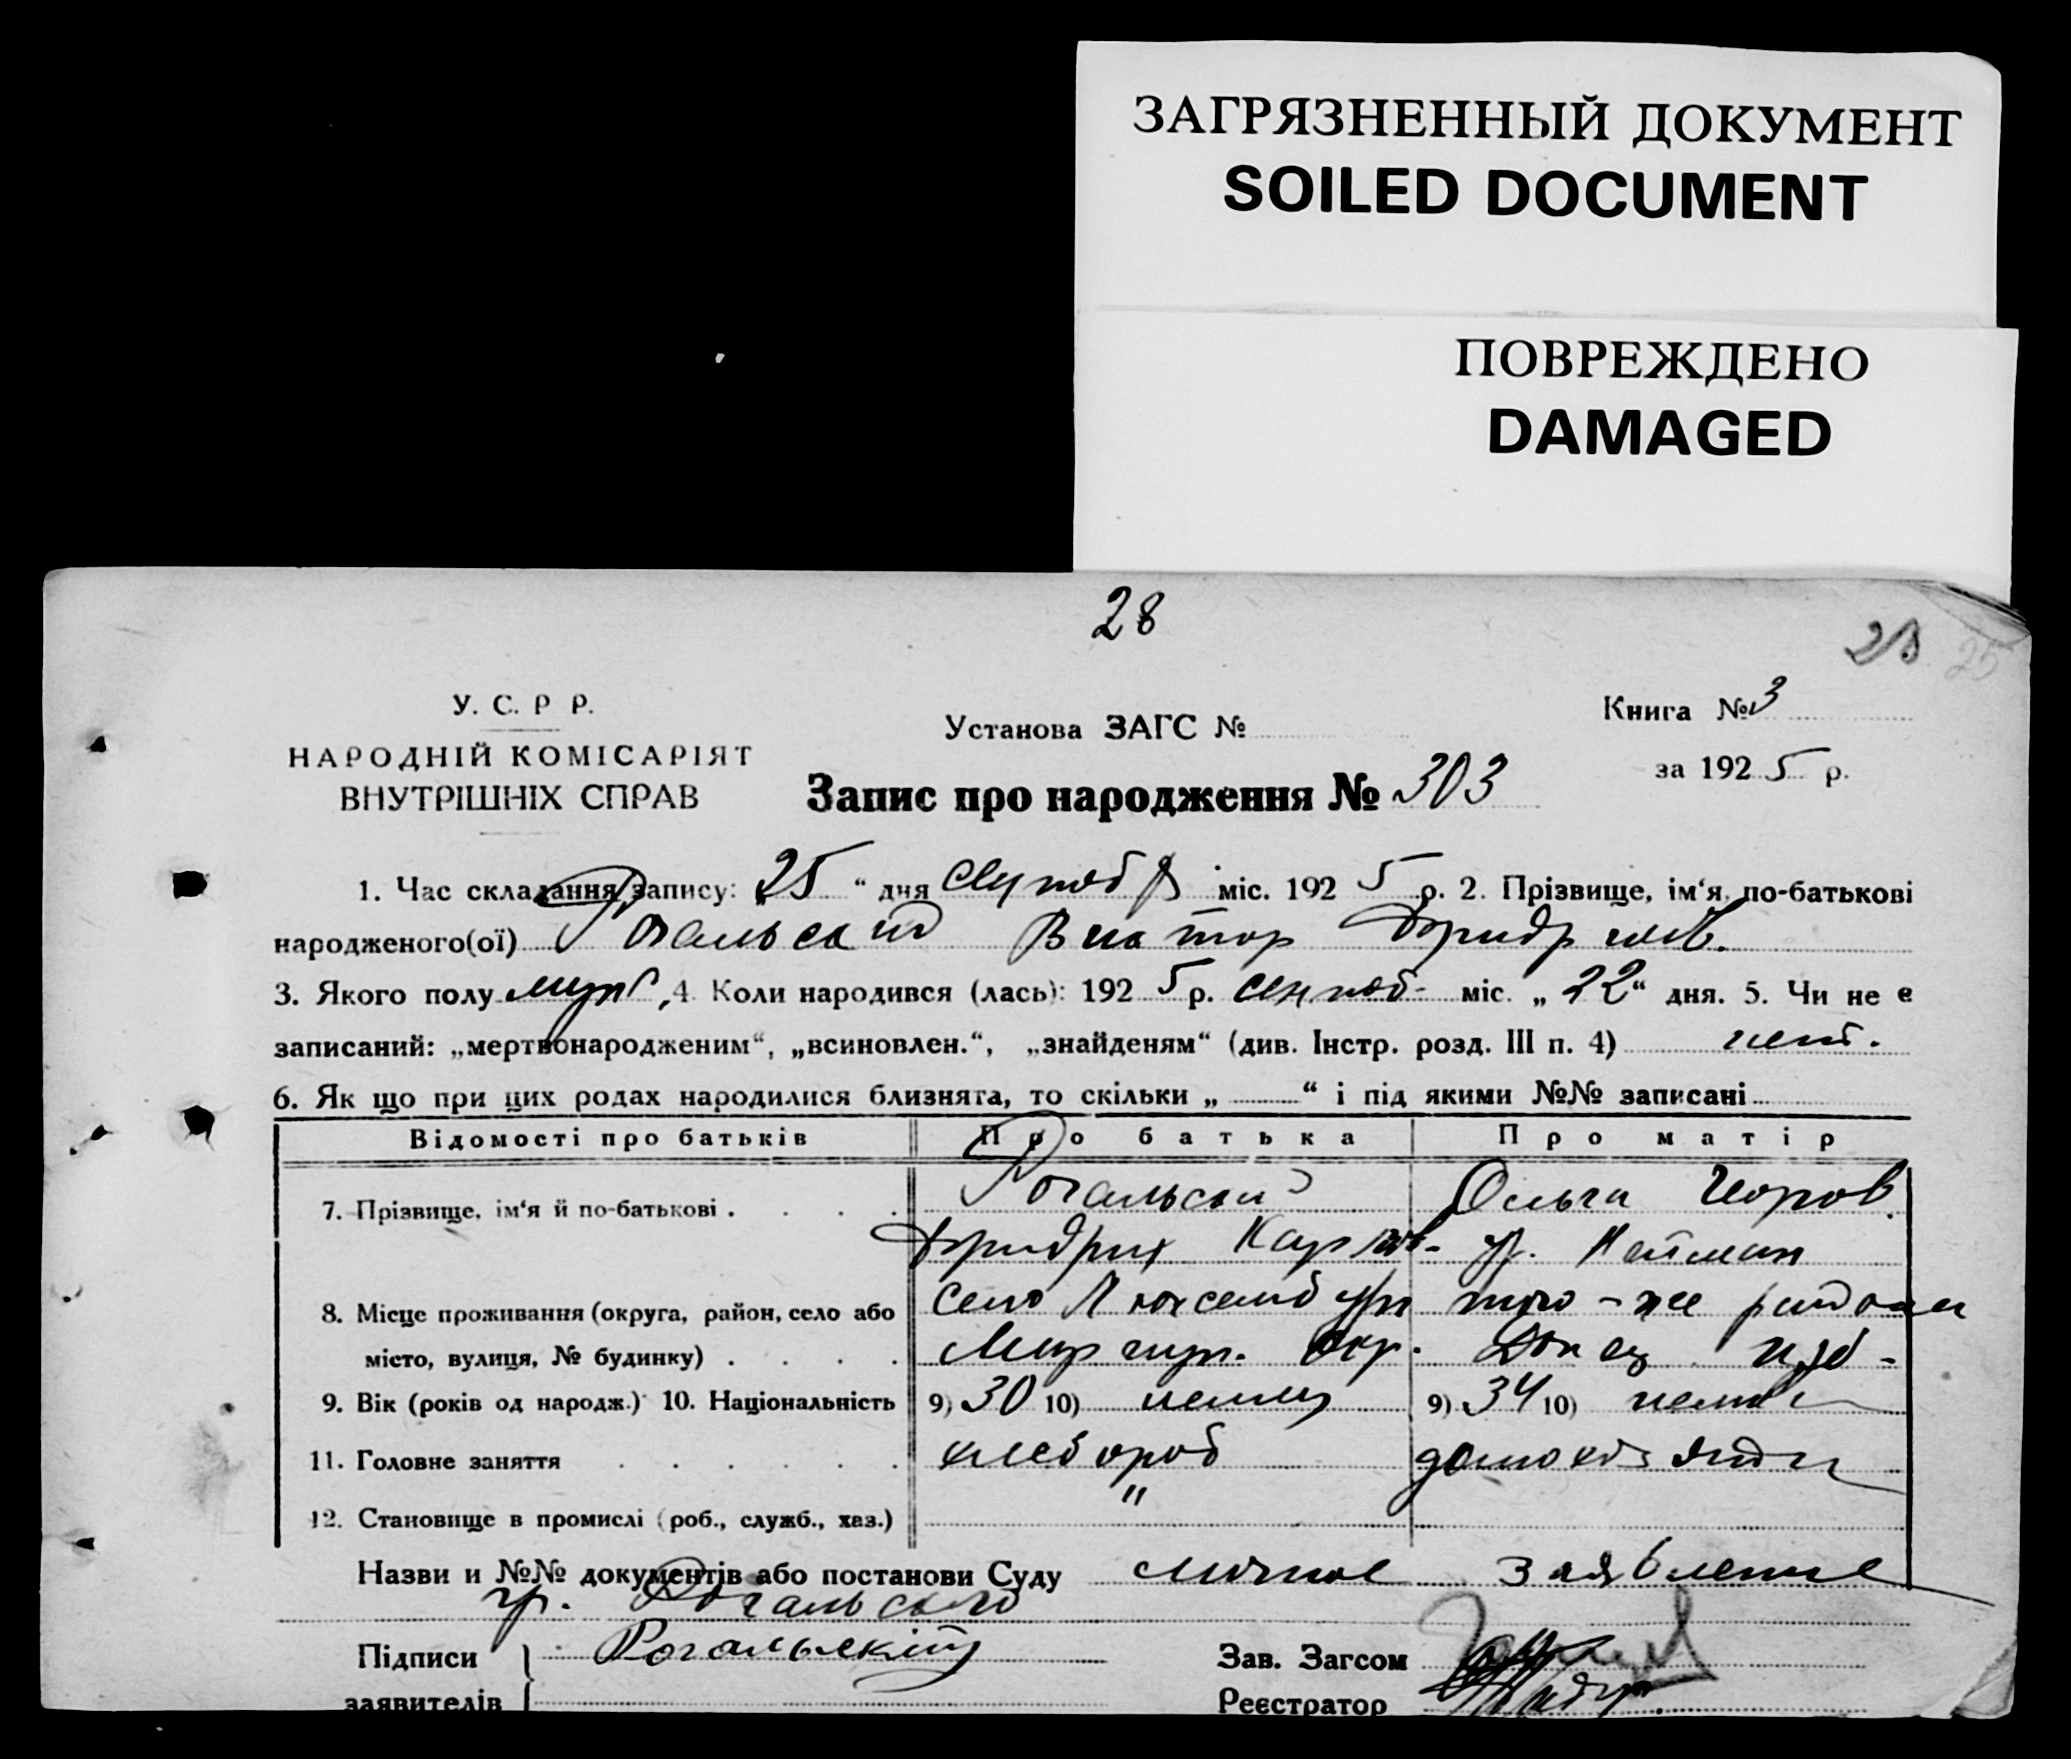 ЗАГРЯЗНЕННЫЙ ДОКУМЕНТ
SOILED DOCUMENT
ПОВРЕЖДЕНО
DAMAGED
28
У. С. Р Р.
НАРОДНІЙ КОМІСАРІЯТ
ВНУТРІШНІХ СПРАВ
Установа ЗАГС №
Книга № 3
за 1925 р.
Запис про народження № 303
1. Час складання запису: „25“ дня сентября міс. 1925 р. 2. Прізвище, ім‘я, по-батькові
народженого(ої) Рогальский Виктор Фридрихов.
3. Якого полу муж, 4. Коли народився (лась): 1925 р. сентяб- міс. „22“ дня. 5. Чи не є
записаний: „мертвонародженим“, „всиновлен.“, „знайденям“ (див. Інстр. розд. III п. 4) нет.
6. Як що при цих родах народилися близнята, то скільки „ “ і під якими №№ записані
Відомості про батьків Про батька Про матір
7. Прізвище, ім‘я й по-батькові . . . . Рогальский Ольга
Фридрих Карлов- Нейман
8. Місце проживання (округа, район, село або село Люксембург того-же района
місто, вулиця, № будинку) . . . . Мариуп. окр. Донец губ-
9. Вік (років од народж.) 10. Національність 9) 30 10) немец 9) 34 10) немка
11. Головне заняття . . . . . . хлебороб домохозяйка
12. Становище в промислі (роб., служб., хаз.) "
Назви и №№ документів або постанови Суду личное заявление
гр. Рогальского
Підписи Рогальский Зав. Загсом
заявителів Реєстратор